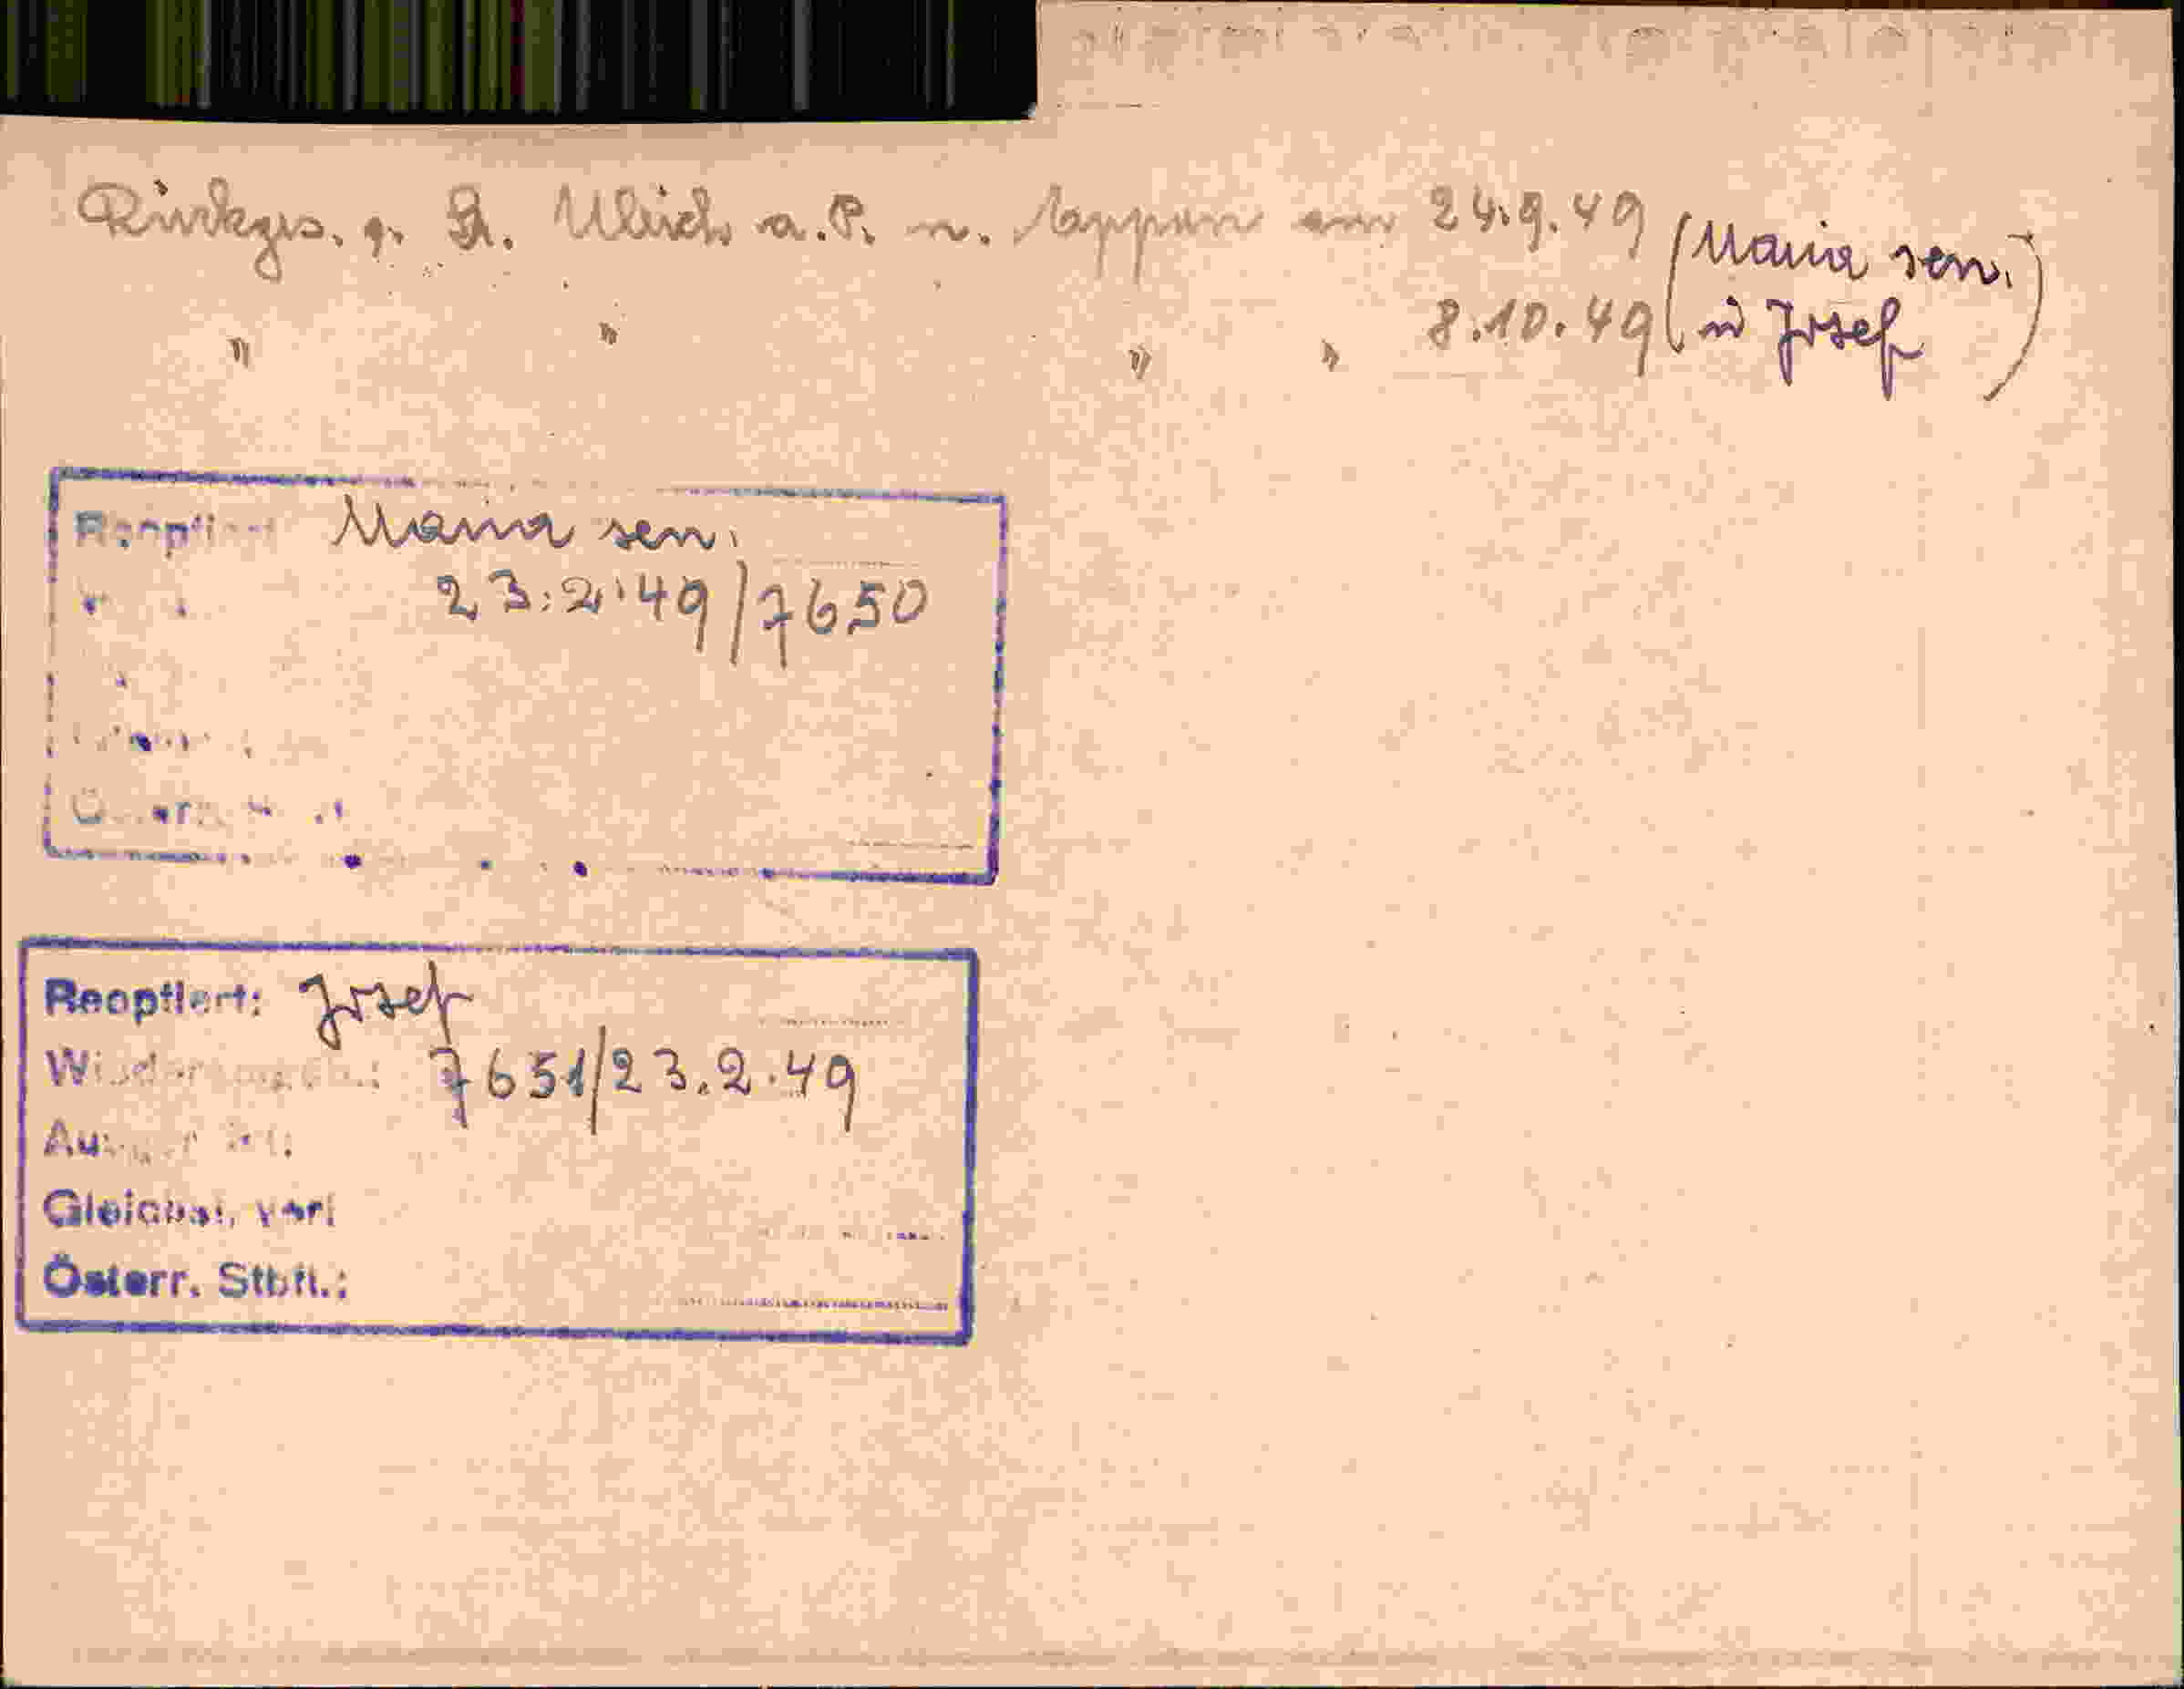 Rückgs. g. St. Ulrich a.P. n. Eppan am 24.9.49 (Maria sen.
" " " " 8.10.49 (u Josef)
Reoptiert: Maria sen.
23.2.49/7650
Reoptiert: Josef
7651/23.2.49
Gleichst. ver:
Österr. Stbft.: